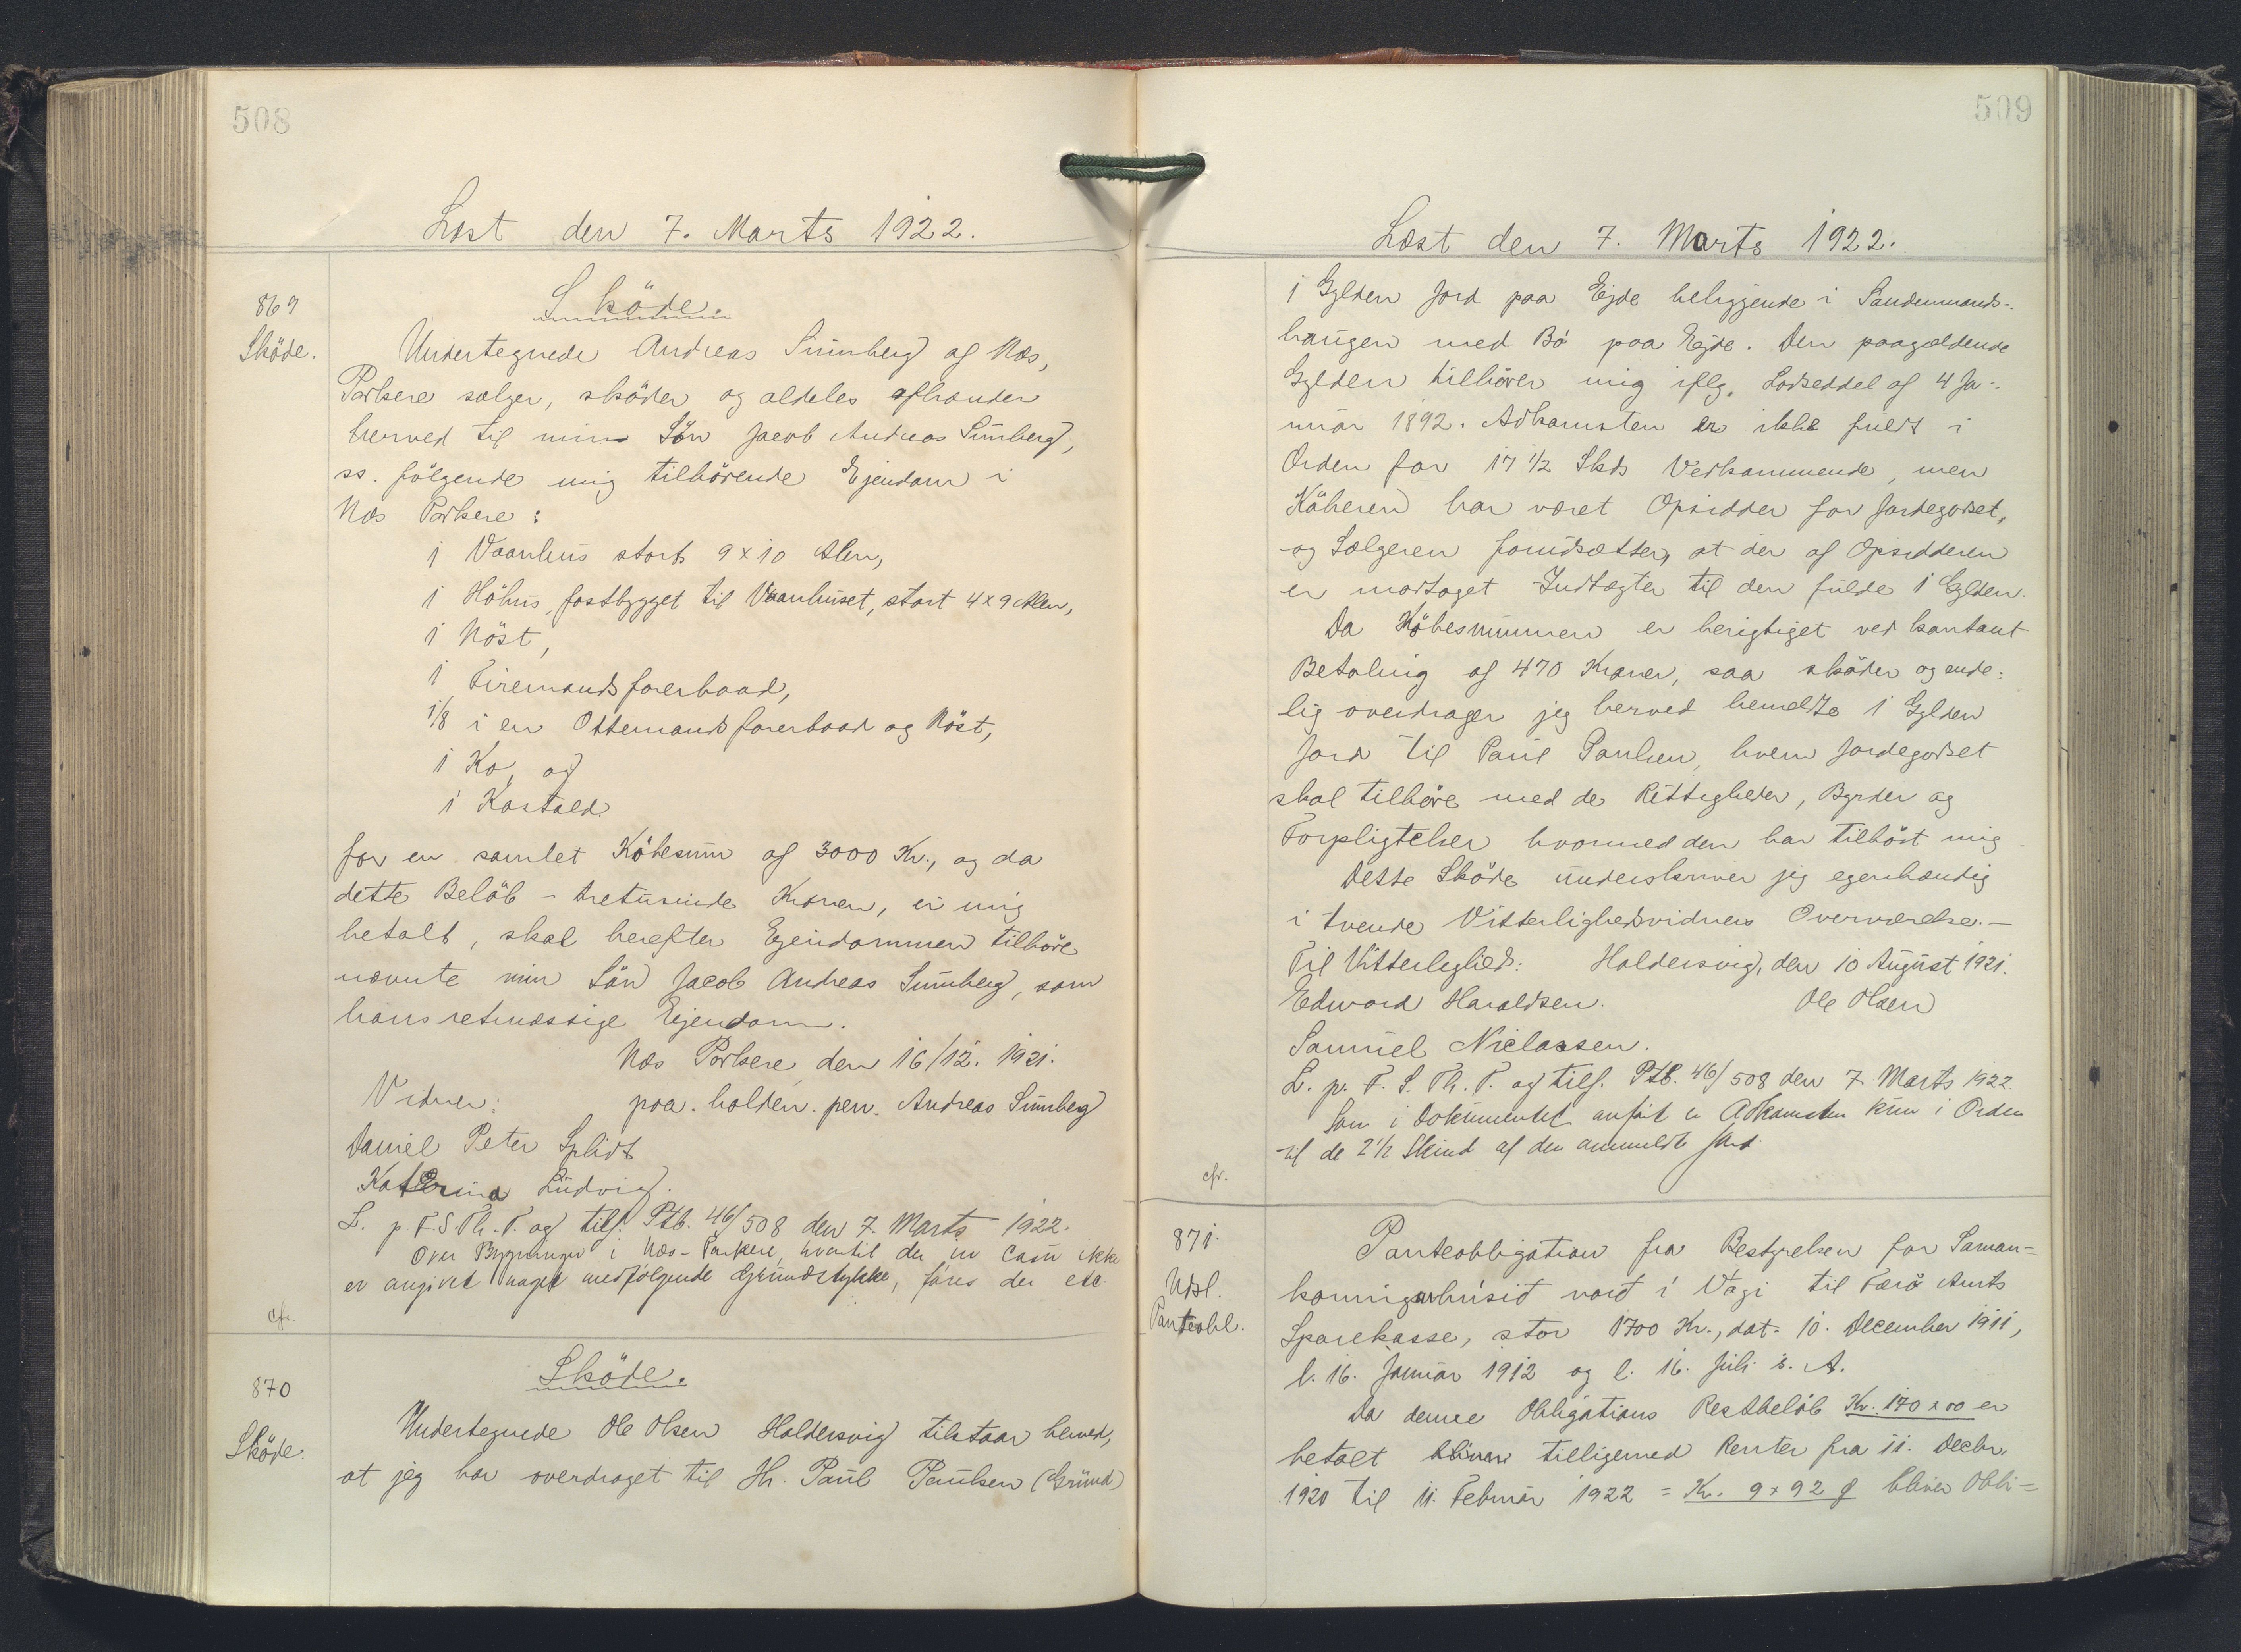 508
Læst den 7. Marts 1922.
869
Sköde.
Sköde.
Undertegnede Andreas Sumberg af Næs,
Porkere sælger, sköder og aldeles afhænder
herved til min Sön Jacob Andreas Sumberg,
ss. fölgende mig tilhörende Ejendom i
Næs Porkere:
1 Vaanhus stort 9 x 10 Alen,
1 Höhus, fastbygget til Vaanhuset, stort 4 x 9 Alen,
1 Nöst,
1 Firemandsfarerbaad,
1/8 i en Ottemandsfarerbaad og Nöst,
1 Ko, og
1 Kostald
for en samlet Köbesum af 3000 Kr., og da
dette Belöb - tretusinde Kroner, er mig
betalt, skal herefter Ejendommen tilhöre
nævnte min Sön Jacob Andreas Sumberg, som
hans retmæssige Ejendom.
Næs Porkere, den 16/12. 1921.
Vidner: paa. holden. pen. Andreas Sumberg
Daniel Peter Splidt
Katrina Ludvig.
L. p. F. S. Th. P. og tilf. Ptb. 46/508 den 7. Marts 1922.
Over Bygninger i Næs-Porkere, hvortil der in casu ikke
er angivet noget medfölgende Grundstykke, föres der etc.
cfr.
870
Sköde.
Sköde.
Undertegnede Ole Olsen Haldersvig tilstaar herved,
at jeg har overdraget til Hr. Paul Paulsen (Grund)
509
Læst den 7. Marts 1922.
1 Gylden Jord paa Ejde beliggende i Sandemands-
haugen med Bö paa Ejde. Den paagældende
Gylden tilhörer mig iflg. Lodseddel af 4 Ja-
nuar 1892. Adkomsten er ikke fuldt i
Orden for 17 1/2 Skds Vedkommende, men
Köberen har været Opsidder for Jordegodset,
og Sælgeren forudsætter, at der af Opsidderen
er modtaget Indtægter til den fulde 1 Gylden.
Da Köbesummen er berigtiget ved kontant
Betaling af 470 Kroner, saa sköder og ende-
lig overdrager jeg herved bemeldte 1 Gylden
Jord til Paul Paulsen, hvem Jordegodset
skal tilhöre med de Rettigheder, Byrder og
Forpligtelser hvormed den har tilhört mig.
Dette Sköde underskriver jeg egenhændig
i tvende Vitterlighedsvidners Overværelse.-
Til Vitterlighed: Haldersvig, den 10 August 1921.
Edward Haraldsen. Ole Olsen
Samuel Niclassen.
L. p. F. S. Th. P. og tilf. Ptb. 46/508 den 7 Marts 1922.
Som i Dokumentet anfört er Adkomsten kun i Orden
til de 2 1/2 Skind af den anmeldte Jord.
cfr.
871.
Udsl.
Panteobl.
Panteobligation fra Bestyrelsen for Saman=
komingarhúsið norð í Vági til Færö Amts
Sparekasse, stor 1700 Kr., dat. 10. December 1911,
l. 16. Januar 1912 og l. 16. Juli s. A.
Da denne Obligations Restbelöb Kr. 170 x 00 er
betalt tilligemed Renter fra 11. Decbr.
1920 til 11. Februar 1922 = Kr. 9 x 92 Ø bliver Obli=